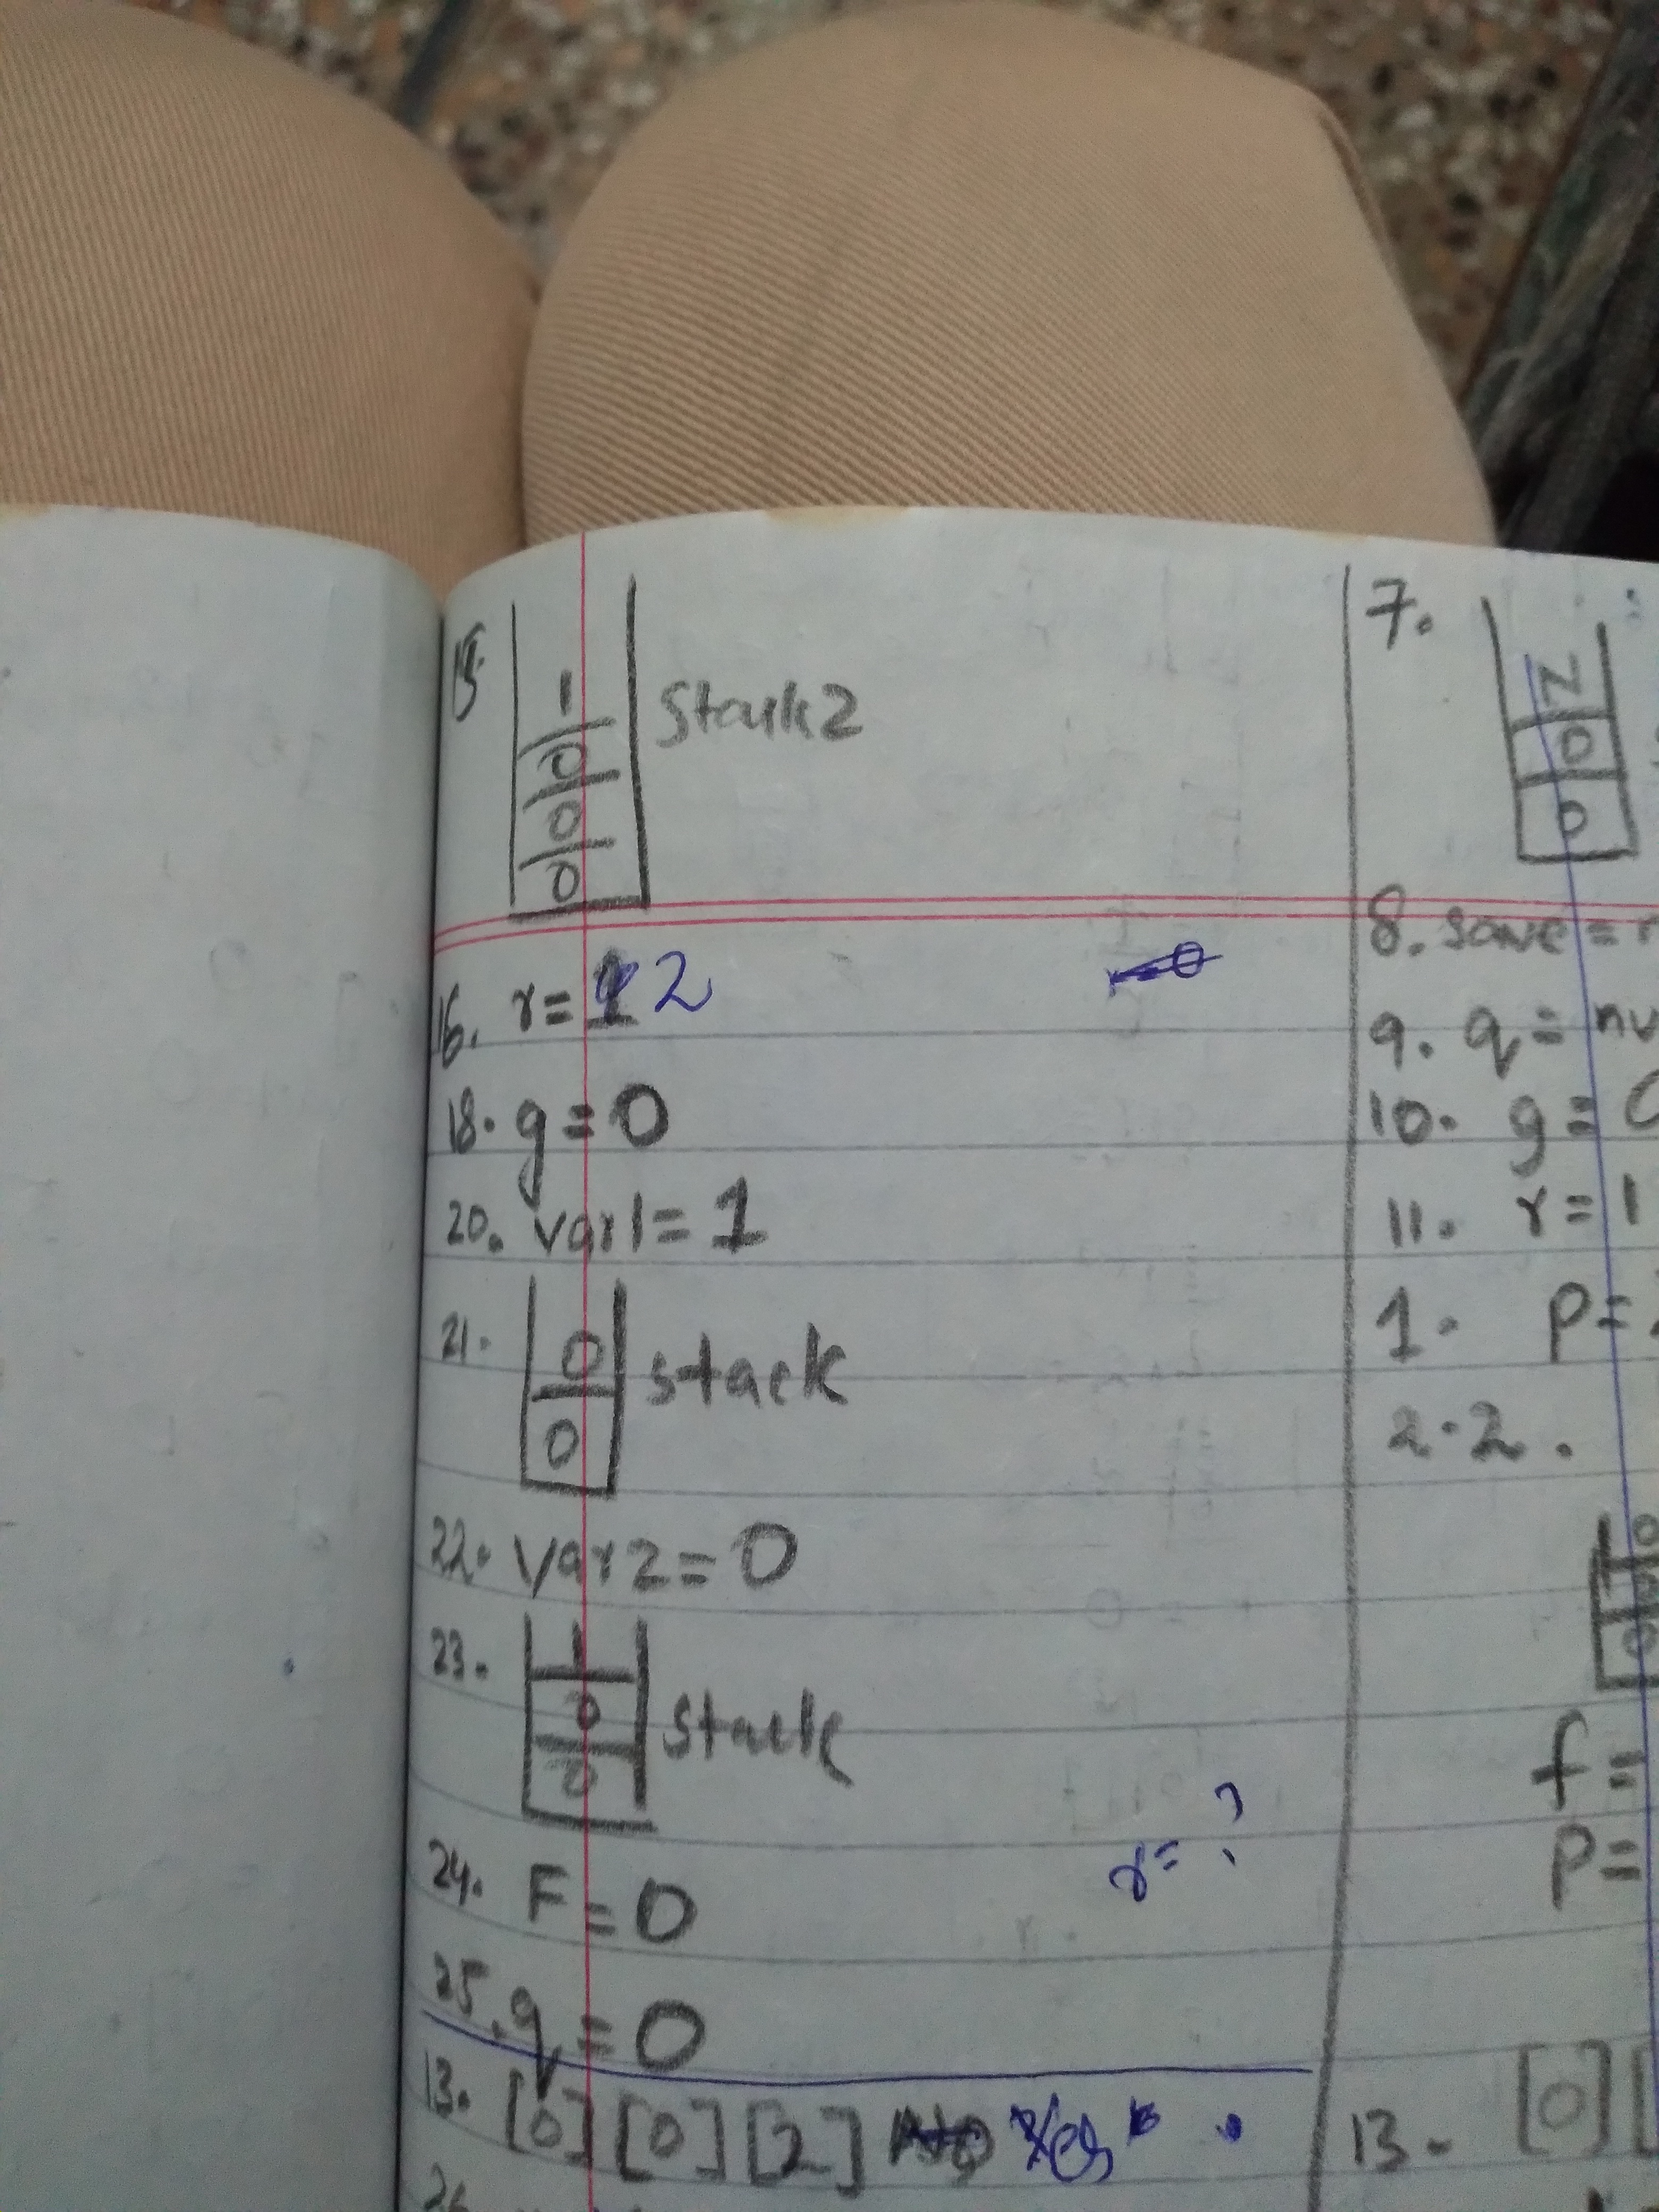 15. 1
0
0
0
Stack2
16. r= 2
18. g=0
20. var1=1
21. 0
0
stack
22. var2=0
23. 1
0
0
stack
24. F=0
r= ?
25. q=0
13. [0] [0] [2] Yes
26.
7. N
0
0
8. save=
9. q=
10. g=
11. r=1
1. P=
2.2.
0
0
f=
P=
13. [0] [